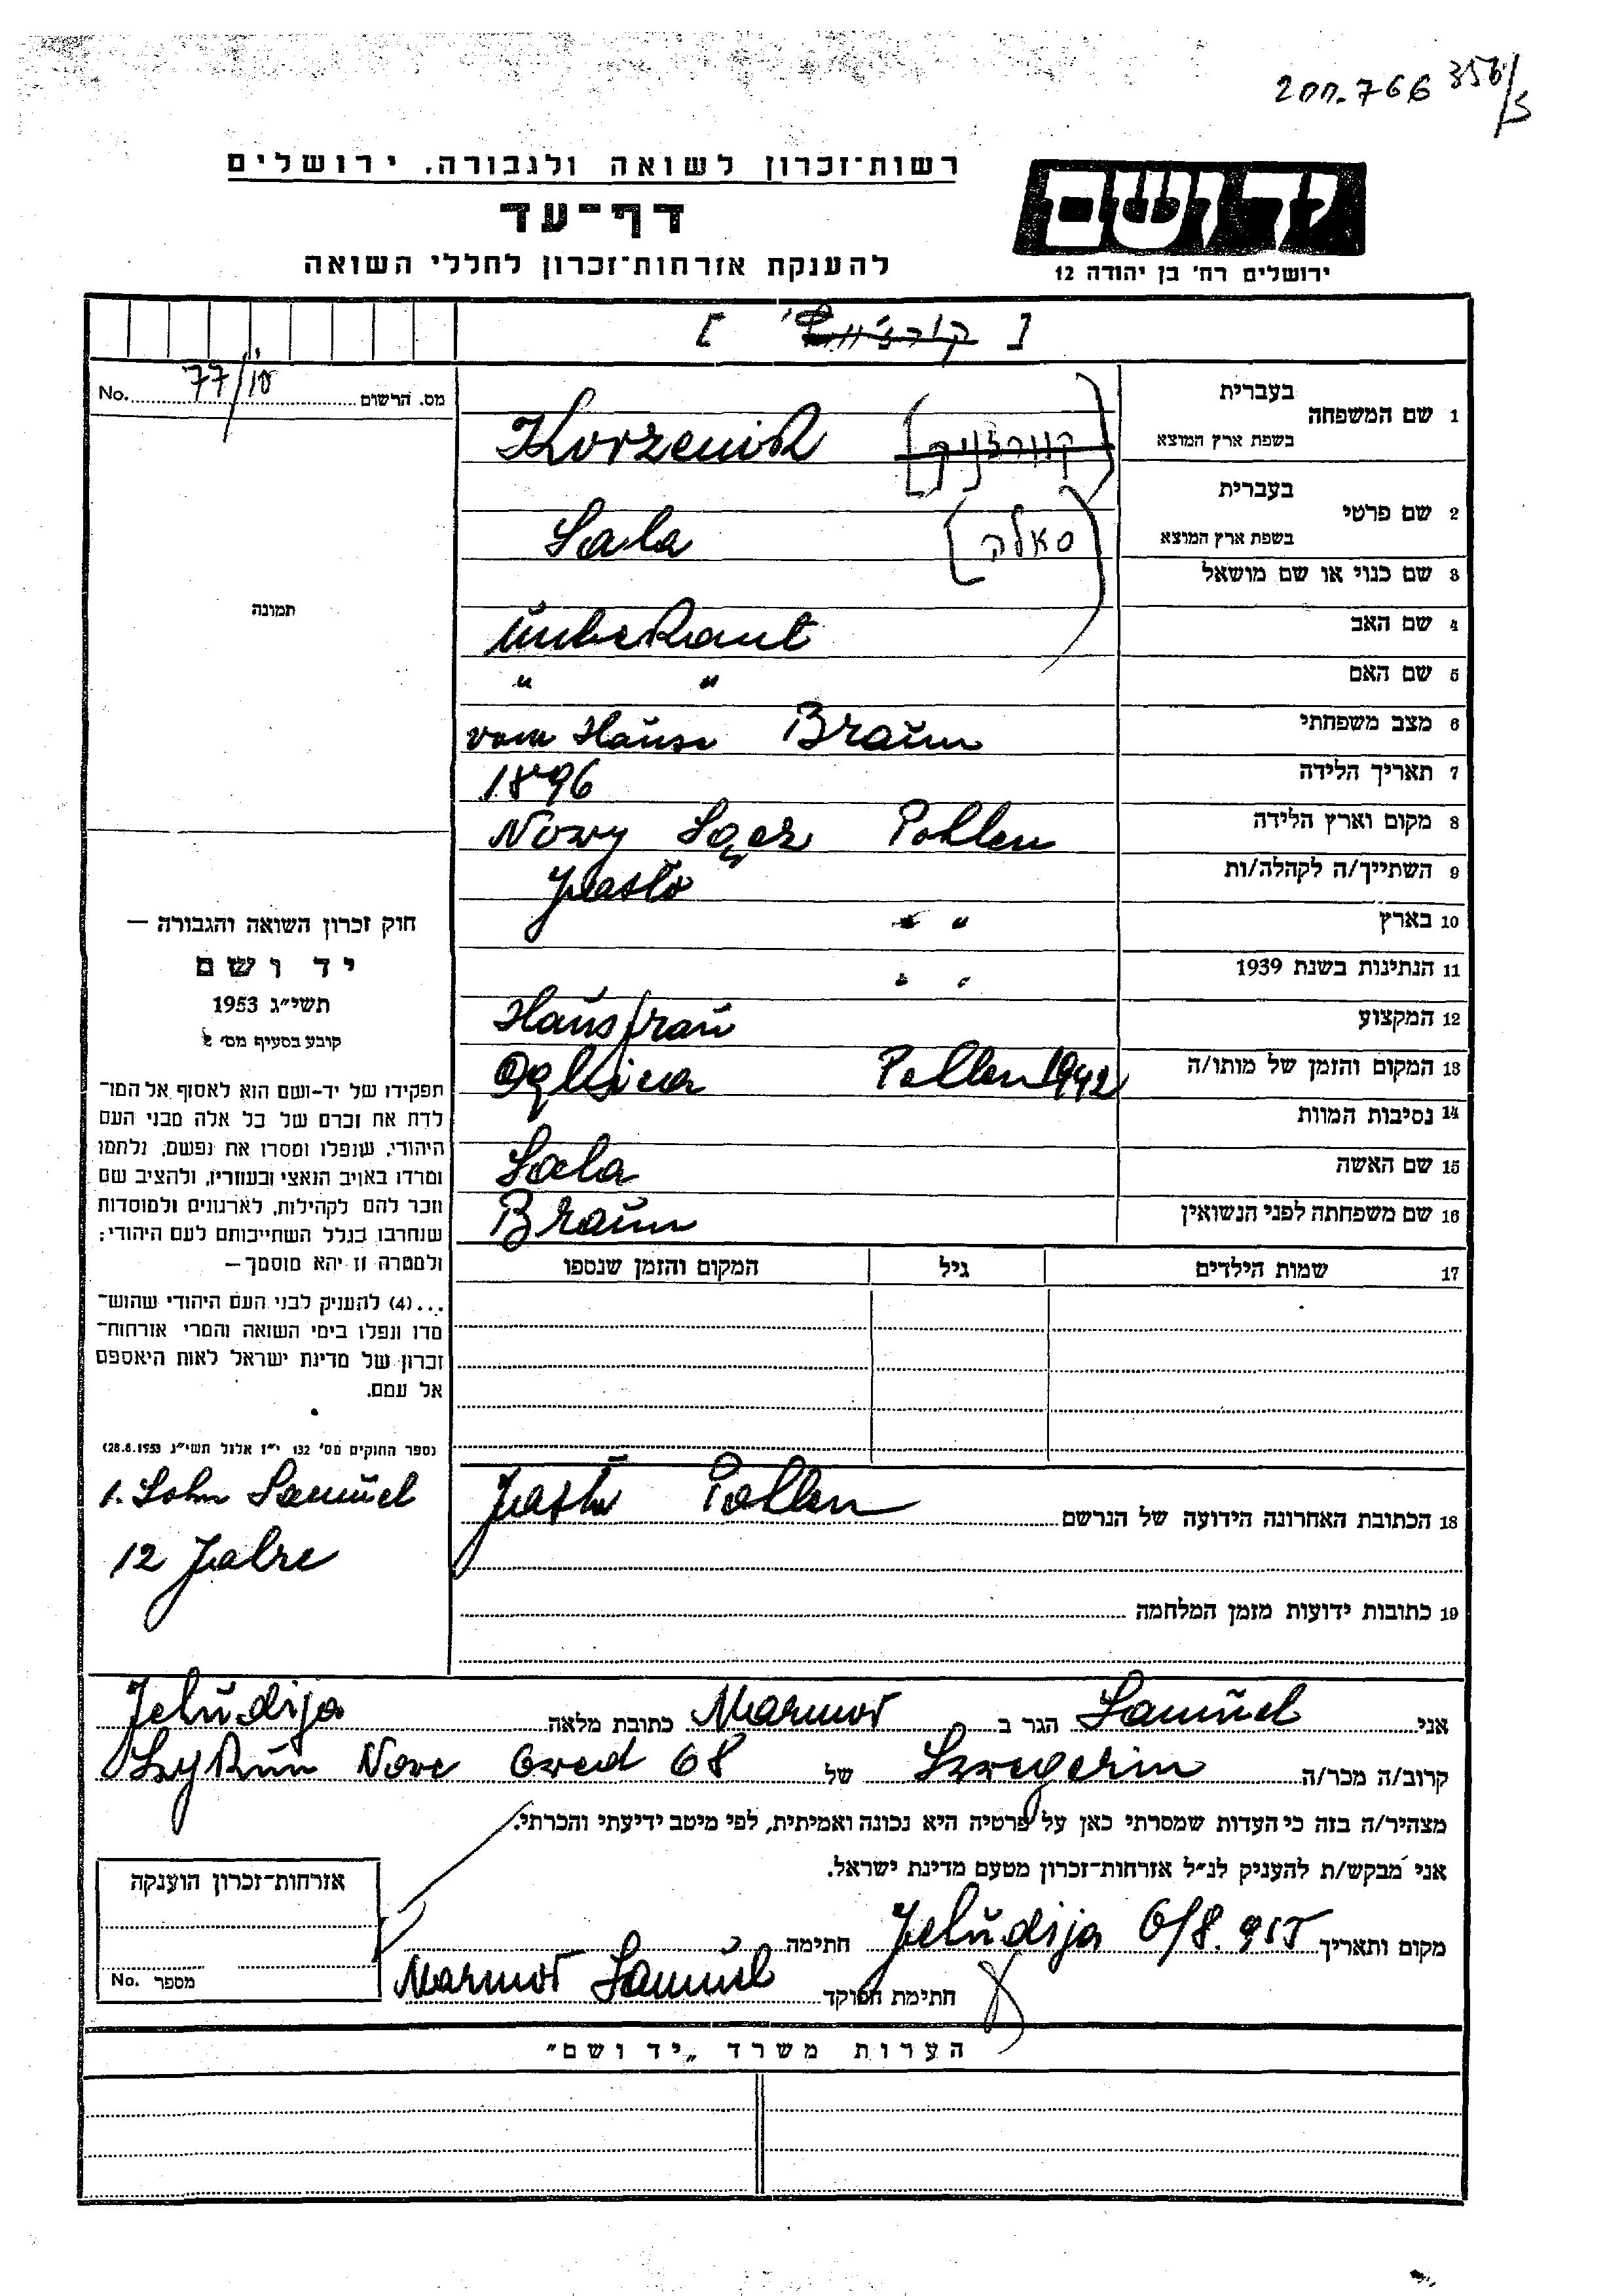 200.766 356/5
רשות־זכרון לשואה ולגבורה, ירושלים
דף־עד
להענקת אזרחות־זכרון לחללי השואה
יד ושם
ירושלים רח׳ בן יהודה 12
No. 77/10 מס. הרשום
1 שם המשפחה
בעברית
בשפת ארץ המוצא
Korzenik
2 שם פרטי
בעברית
[סאלה]
בשפת ארץ המוצא
Sala
3 שם כנוי או שם מושאל
4 שם האב
Unbekant
5 שם האם
" "
6 מצב משפחתי
vom Hause Braun
7 תאריך הלידה
1896
8 מקום וארץ הלידה
Nowy Sącz Pohlen
9 השתייך/ה לקהלה/ות
Jasło
10 בארץ
" "
11 הנתינות בשנת 1939
" "
12 המקצוע
Hausfrau
13 המקום והזמן של מותו/ה
Pollen 1942
14 נסיבות המוות
15 שם האשה
Sala
16 שם משפחתה לפני הנשואין
Braun
17 שמות הילדים
גיל
המקום והזמן שנספו
18 הכתובת האחרונה הידועה של הנרשם
Jasło Pollen
19 כתובות ידועות מזמן המלחמה
תמונה
חוק זכרון השואה והגבורה —
יד ושם
תשי״ג 1953
קובע בסעיף מס׳ 2
תפקידו של יד-ושם הוא לאסוף אל המו־
לדת את זכרם של כל אלה מבני העם
היהודי, שנפלו ומסרו את נפשם, נלחמו
ומרדו באויב הנאצי ובעוזריו, ולהציב שם
וזכר להם לקהילות, לארגונים ולמוסדות
שנחרבו בגלל השתייכותם לעם היהודי;
ולמטרה זו יהא מוסמך —
...(4) להעניק לבני העם היהודי שהוש־
מדו ונפלו בימי השואה והמרי אזרחות־
זכרון של מדינת ישראל לאות היאספם
אל עמם.
(ספר החוקים מס׳ 132 י״ז אלול תשי״ג 28.8.1953)
1. Sohn Samuel
12 Jahre
אני Samuel הגר ב Marmor כתובת מלאה Jehudija
קרוב/ה מכר/ה Szwegerin של Szykun Nove Oved 68
מצהיר/ה בזה כי העדות שמסרתי כאן על פרטיה היא נכונה ואמיתית, לפי מיטב ידיעתי והכרתי.
אני מבקש/ת להעניק לנ״ל אזרחות־זכרון מטעם מדינת ישראל.
מקום ותאריך Jehudija 6/8. 955 חתימה
Marmor Samuel
חתימת הפוקד
אזרחות־זכרון הוענקה
No. מספר
הערות משרד „יד ושם״